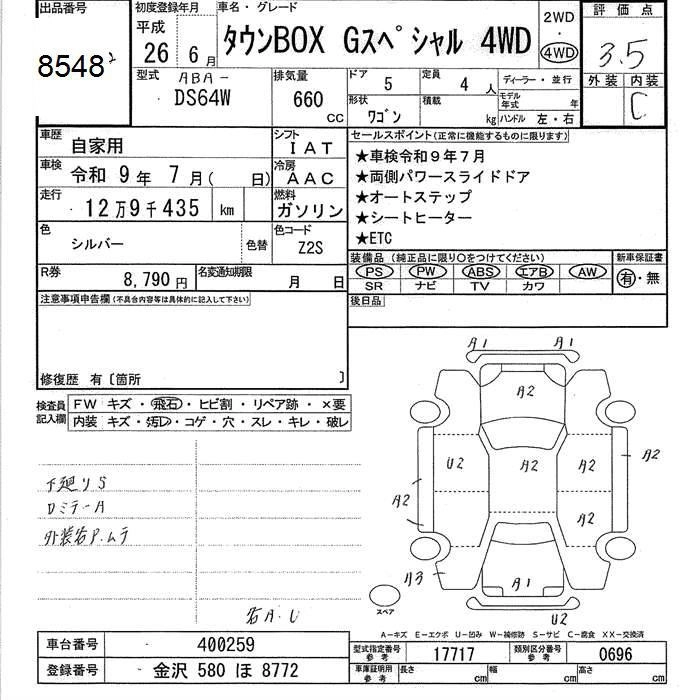 出品番号
8548
初度登録年月
平成
26 年 6 月
車名・グレード
タウンBOX Gスペシャル 4WD
2WD
・
4WD
評価点
3.5
外装 内装
C
型式 ABA-
DS64W
排気量
660
cc
ドア 5
定員 4 人
ディーラー・並行
形状
ワゴン
積載 kg
モデル年式 年
ハンドル 左・右
車歴 自家用
シフト
IAT
車検 令和 9 年 7 月( 日)
冷房
AAC
走行 12万9千435 km
燃料
ガソリン
色 シルバー
色替
色コード
Z2S
R券 8,790 円
名変通知期限 月 日
セールスポイント(正常に機能するものに限ります)
★車検令和9年7月
★両側パワースライドドア
★オートステップ
★シートヒーター
★ETC
装備品 (純正品に限り○をつけてください)
PS PW ABS エアB AW
SR ナビ TV カワ
新車保証書
有・無
後日品
注意事項申告欄(不具合内容等は具体的に記入して下さい)
修復歴 有〔箇所 〕
検査員
記入欄
FW キズ・飛石・ヒビ割・リペア跡・×要
内装 キズ・汚レ・コゲ・穴・スレ・キレ・破レ
下廻りS
ロミラーA
外装右P.ムラ
右A.U
A1 A1
A2
U2 A2 A2 A2
A2
A2
A3 A1
スペア
U2
A-キズ E-エクボ U-凹み W-補修跡 S-サビ C-腐食 XX-交換済
車台番号 400259
登録番号 金沢 580 ほ 8772
型式指定番号
参考
17717
類別区分番号
参考
0696
車庫証明用
参考
長さ cm
幅 cm
高さ cm